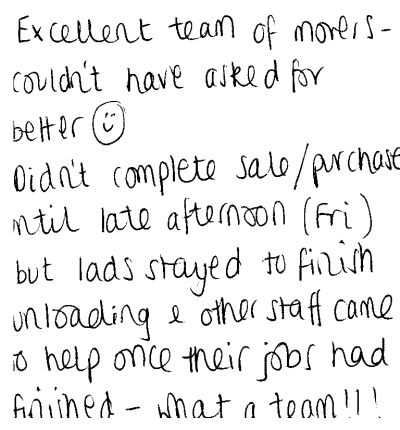 Excellent team of movers -
couldn't have asked for
better ☺
Didn't complete sale/purchase
until late afternoon (Fri)
but lads stayed to finish
unloading & other staff came
to help once their jobs had
finished - what a team!!!